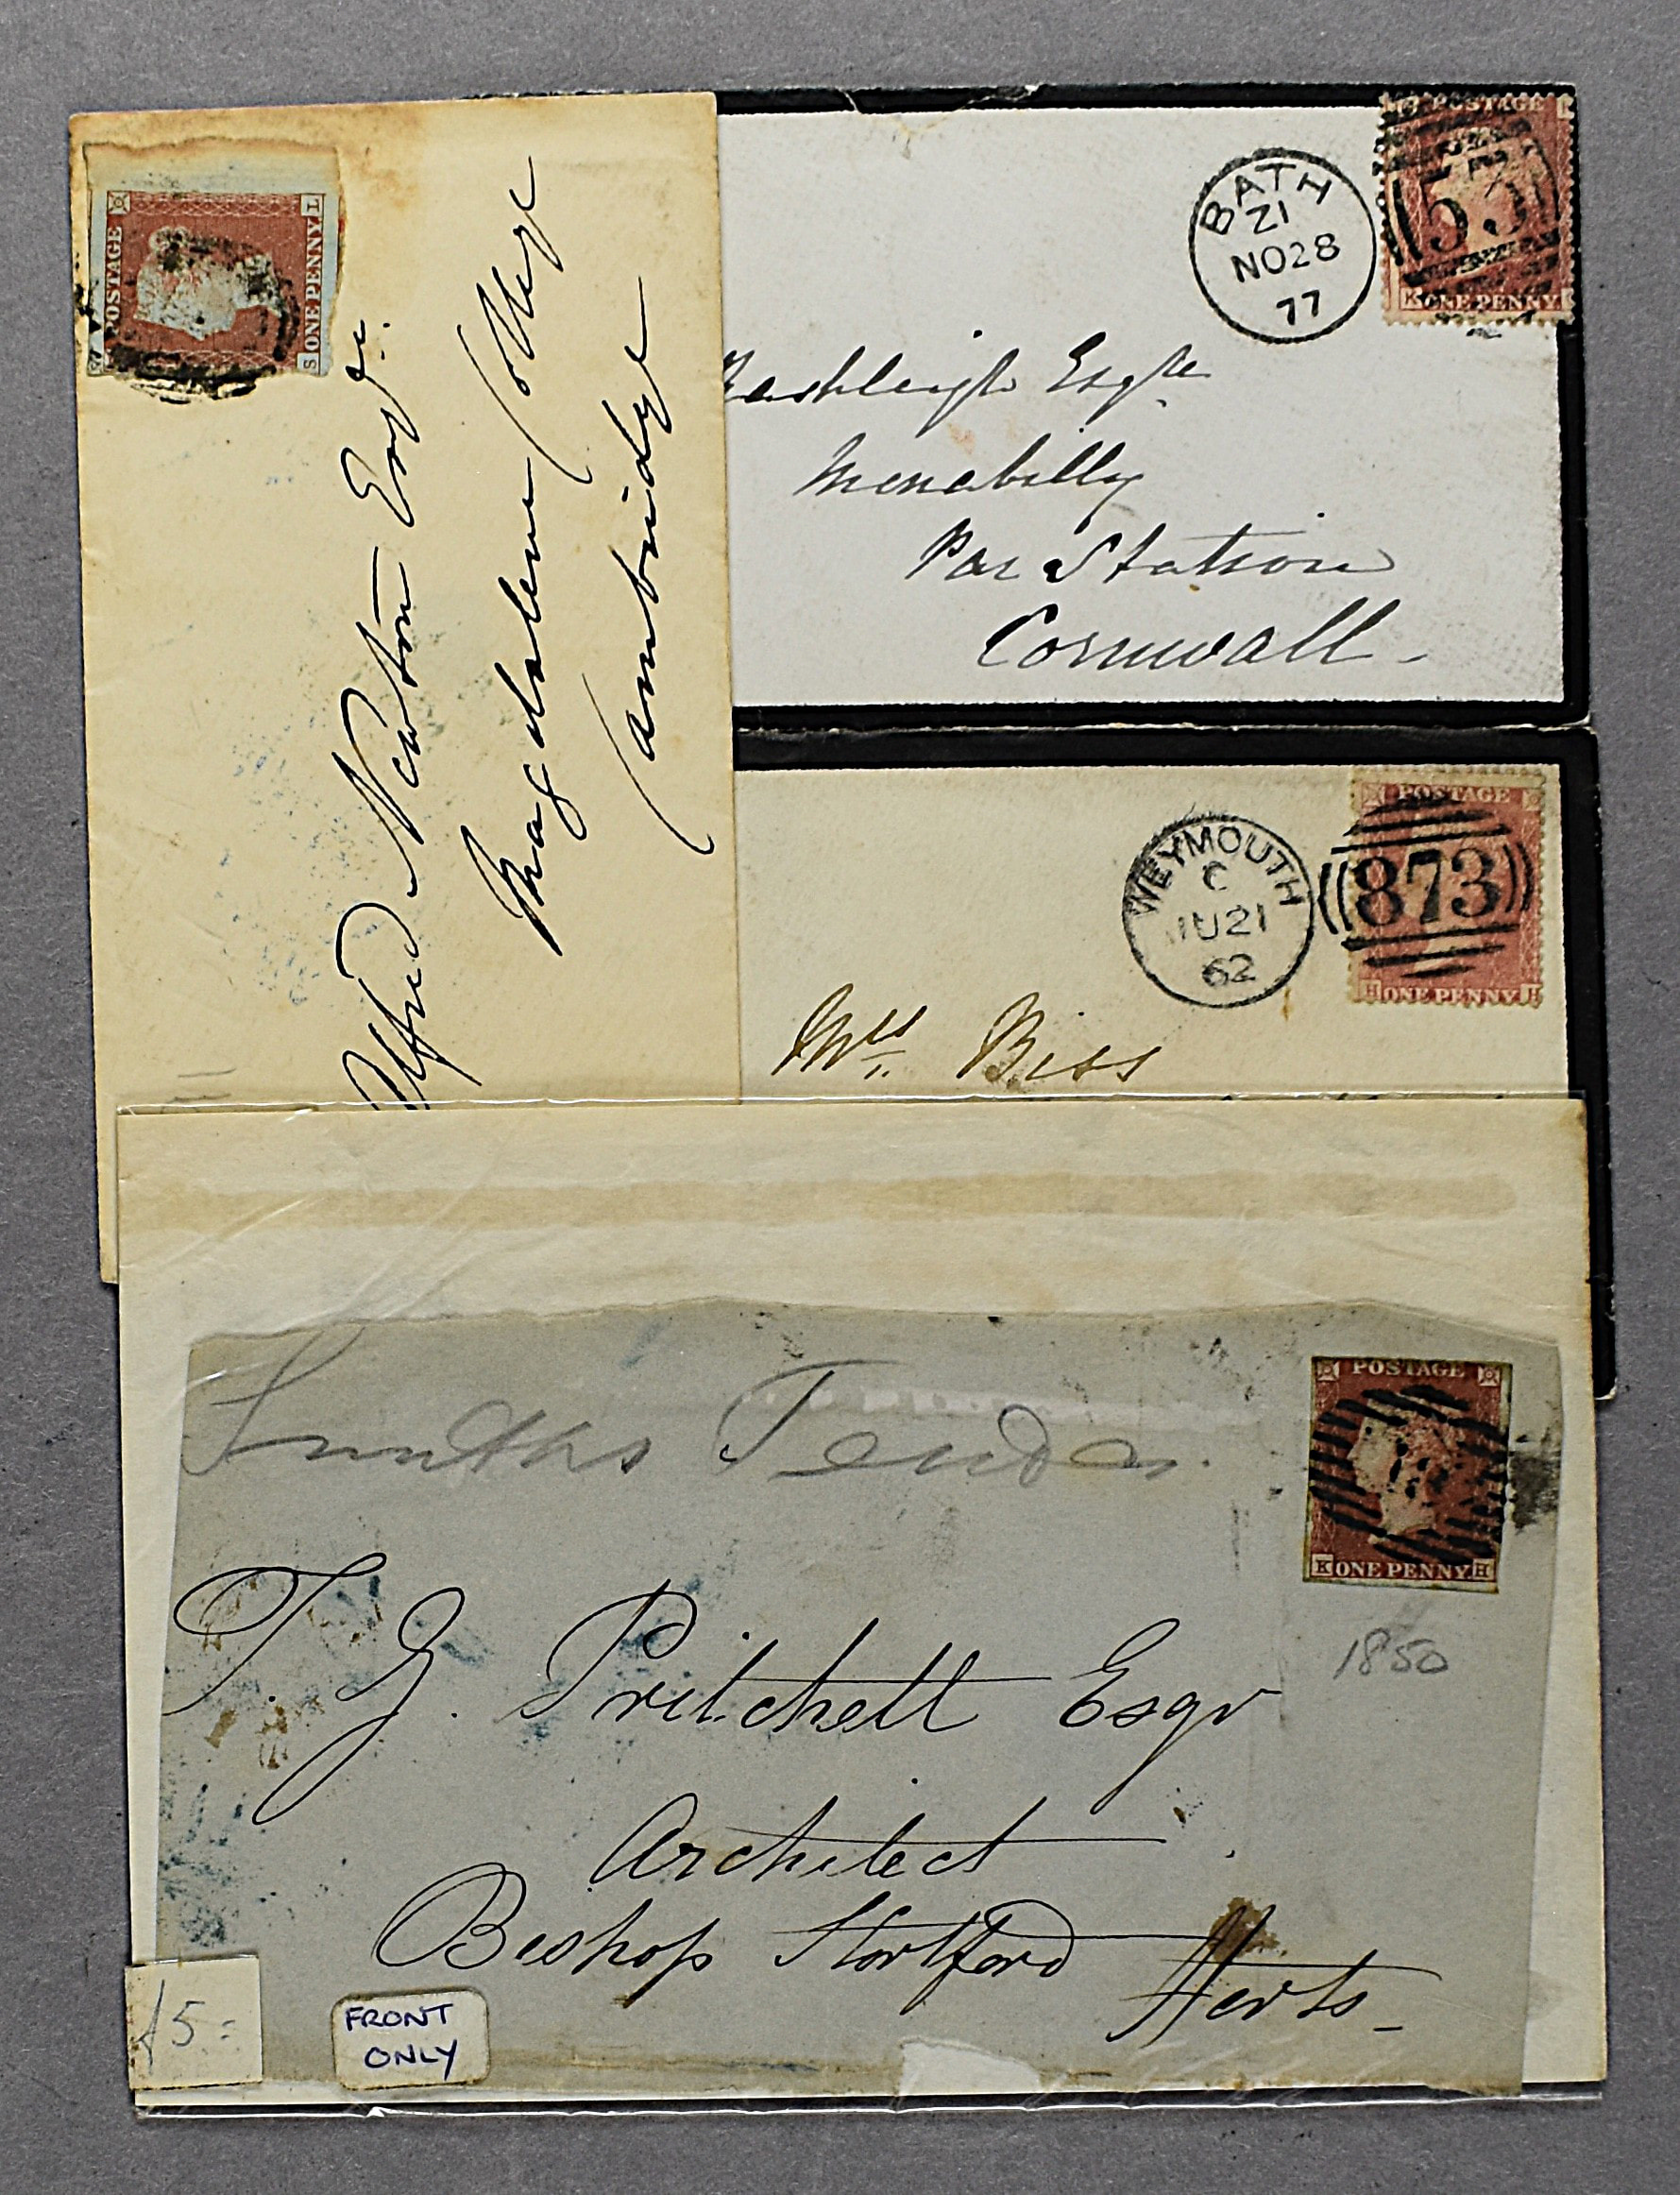 POSTAGE
S ONE PENNY L
Alfred Newton Esqre.
Magdalene College
Cambridge
BATH
Z1
NO28
77
POSTAGE
53
K ONE PENNY
Rashleigh Esqre
Menabilly
Par Station
Cornwall
WEYMOUTH
C
JU21
62
POSTAGE
873
H ONE PENNY H
Mrs Biss
Smiths Tender.
POSTAGE
K ONE PENNY H
1850
T. G. Pritchett Esqr
Architect
Bishop Stortford Herts
£5=
FRONT
ONLY